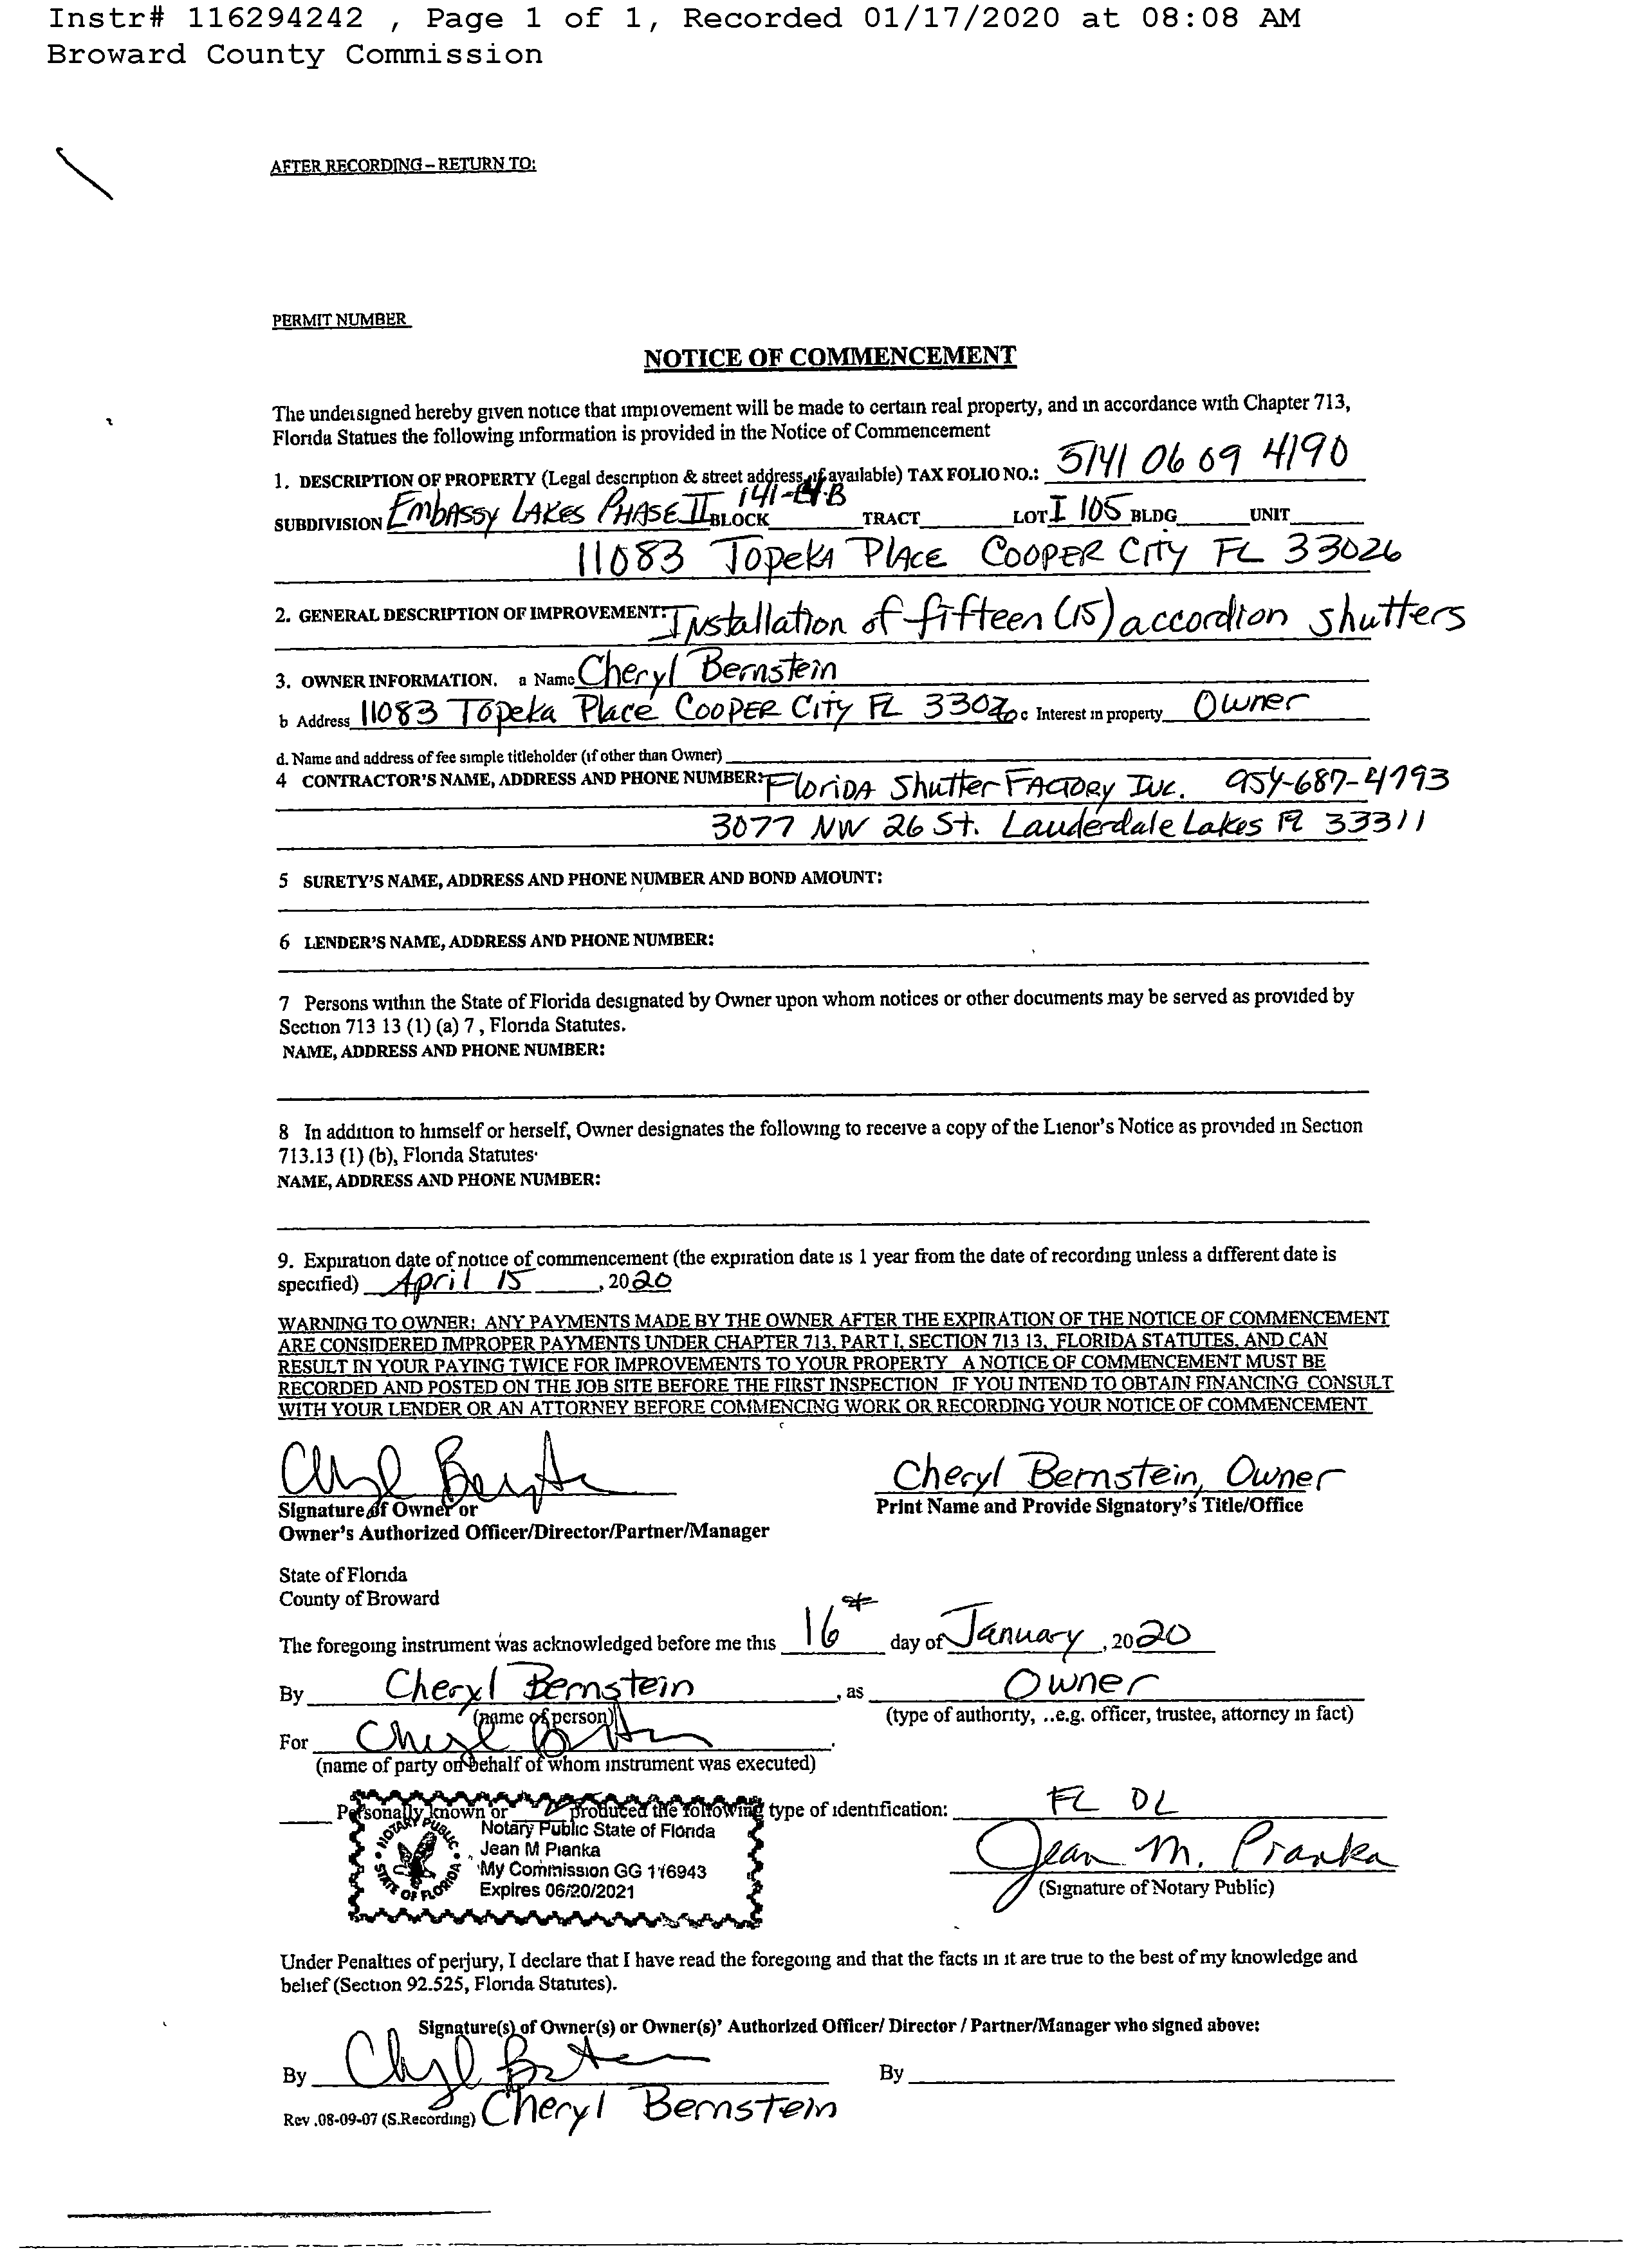 Instr# 116294242 , Page 1 of 1, Recorded 01/17/2020 at 08:08 AM
Broward County Commission
AFTER RECORDING – RETURN TO:
PERMIT NUMBER
NOTICE OF COMMENCEMENT
The undersigned hereby given notice that improvement will be made to certain real property, and in accordance with Chapter 713,
Florida Statues the following information is provided in the Notice of Commencement
1. DESCRIPTION OF PROPERTY (Legal description & street address, if available) TAX FOLIO NO.: 5141 06 09 4190
SUBDIVISION Embassy Lakes Phase II 141- B BLOCK TRACT LOT I 105 BLDG UNIT
11083 Topeka Place Cooper City FL 33026
2. GENERAL DESCRIPTION OF IMPROVEMENT: Installation of fifteen (15) accordion shutters
3. OWNER INFORMATION. a Name Cheryl Bernstein
b Address 11083 Topeka Place Cooper City FL 33026 c Interest in property Owner
d. Name and address of fee simple titleholder (if other than Owner)
4 CONTRACTOR'S NAME, ADDRESS AND PHONE NUMBER: Florida Shutter Factory Inc. 954-687-4793
3077 NW 26 St. Lauderdale Lakes Fl 33311
5 SURETY'S NAME, ADDRESS AND PHONE NUMBER AND BOND AMOUNT:
6 LENDER'S NAME, ADDRESS AND PHONE NUMBER:
7 Persons within the State of Florida designated by Owner upon whom notices or other documents may be served as provided by
Section 713 13 (1) (a) 7 , Florida Statutes.
NAME, ADDRESS AND PHONE NUMBER:
8 In addition to himself or herself, Owner designates the following to receive a copy of the Lienor's Notice as provided in Section
713.13 (1) (b), Florida Statutes·
NAME, ADDRESS AND PHONE NUMBER:
9. Expiration date of notice of commencement (the expiration date is 1 year from the date of recording unless a different date is
specified) April 15 , 2020
WARNING TO OWNER: ANY PAYMENTS MADE BY THE OWNER AFTER THE EXPIRATION OF THE NOTICE OF COMMENCEMENT
ARE CONSIDERED IMPROPER PAYMENTS UNDER CHAPTER 713, PART I, SECTION 713 13, FLORIDA STATUTES, AND CAN
RESULT IN YOUR PAYING TWICE FOR IMPROVEMENTS TO YOUR PROPERTY A NOTICE OF COMMENCEMENT MUST BE
RECORDED AND POSTED ON THE JOB SITE BEFORE THE FIRST INSPECTION IF YOU INTEND TO OBTAIN FINANCING CONSULT
WITH YOUR LENDER OR AN ATTORNEY BEFORE COMMENCING WORK OR RECORDING YOUR NOTICE OF COMMENCEMENT
Cheryl Bernstein, Owner
Signature of Owner or Print Name and Provide Signatory's Title/Office
Owner's Authorized Officer/Director/Partner/Manager
State of Florida
County of Broward
The foregoing instrument was acknowledged before me this 16th day of January , 2020
By Cheryl Bernstein , as Owner
(name of person) (type of authority, ..e.g. officer, trustee, attorney in fact)
For
(name of party on behalf of whom instrument was executed)
Personally known or produced the following type of identification: FL DL
Notary Public State of Florida
Jean M Pianka
My Commission GG 116943
Expires 06/20/2021
NOTARY PUBLIC STATE OF FLORIDA
Jean M. Pianka
(Signature of Notary Public)
Under Penalties of perjury, I declare that I have read the foregoing and that the facts in it are true to the best of my knowledge and
belief (Section 92.525, Florida Statutes).
Signature(s) of Owner(s) or Owner(s)' Authorized Officer/ Director / Partner/Manager who signed above:
By By
Rev .08-09-07 (S.Recording) Cheryl Bernstein